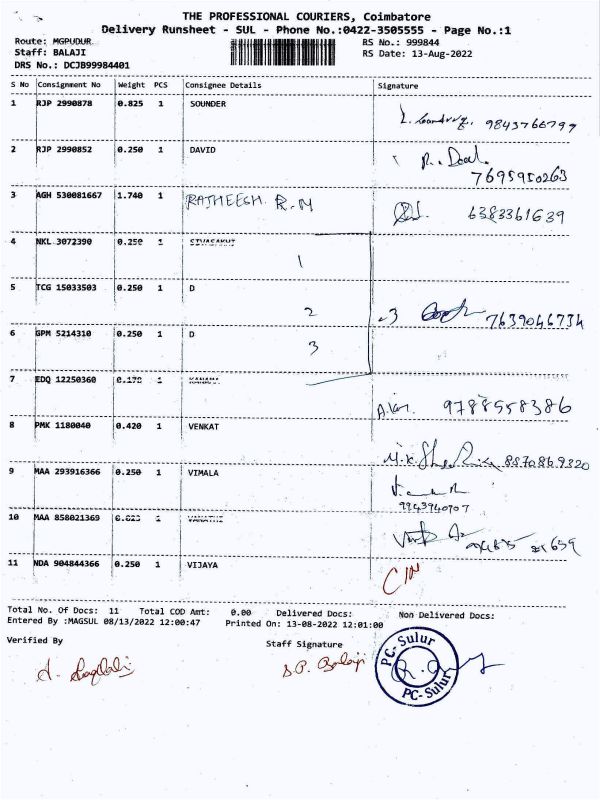 THE PROFESSIONAL COURIERS, Coimbatore
Delivery Runsheet - SUL - Phone No.:0422-3505555 - Page No.:1
Route: MGPUDUR RS No.: 999844
Staff: BALAJI RS Date: 13-Aug-2022
DRS No.: DCJB99984401
S No Consignment No Weight PCS Consignee Details Signature
1 RJP 2990878 0.825 1 SOUNDER
9843766799
2 RJP 2990852 0.250 1 DAVID
7695950263
3 AGH 530081667 1.740 1 RATHEESH R.M 6383361639
4 NKL 3072390 0.250 1 SIVASAKHI
1
5 TCG 15033503 0.250 1 D
2 3 7639046734
6 GPM 5214310 0.250 1 D
3
7 EDQ 12250360 0.170 1
9788558386
8 PMK 1180040 0.420 1 VENKAT
8870869320
9 MAA 293916366 0.250 1 VIMALA
9943940707
10 MAA 858021369 1
11 NDA 904844366 0.250 1 VIJAYA
Total No. Of Docs: 11 Total COD Amt: 0.00 Delivered Docs: Non Delivered Docs:
Entered By :MAGSUL 08/13/2022 12:00:47 Printed On: 13-08-2022 12:01:00
Verified By Staff Signature
S.P. Balaji
PC-Sulur
PC-Sulur